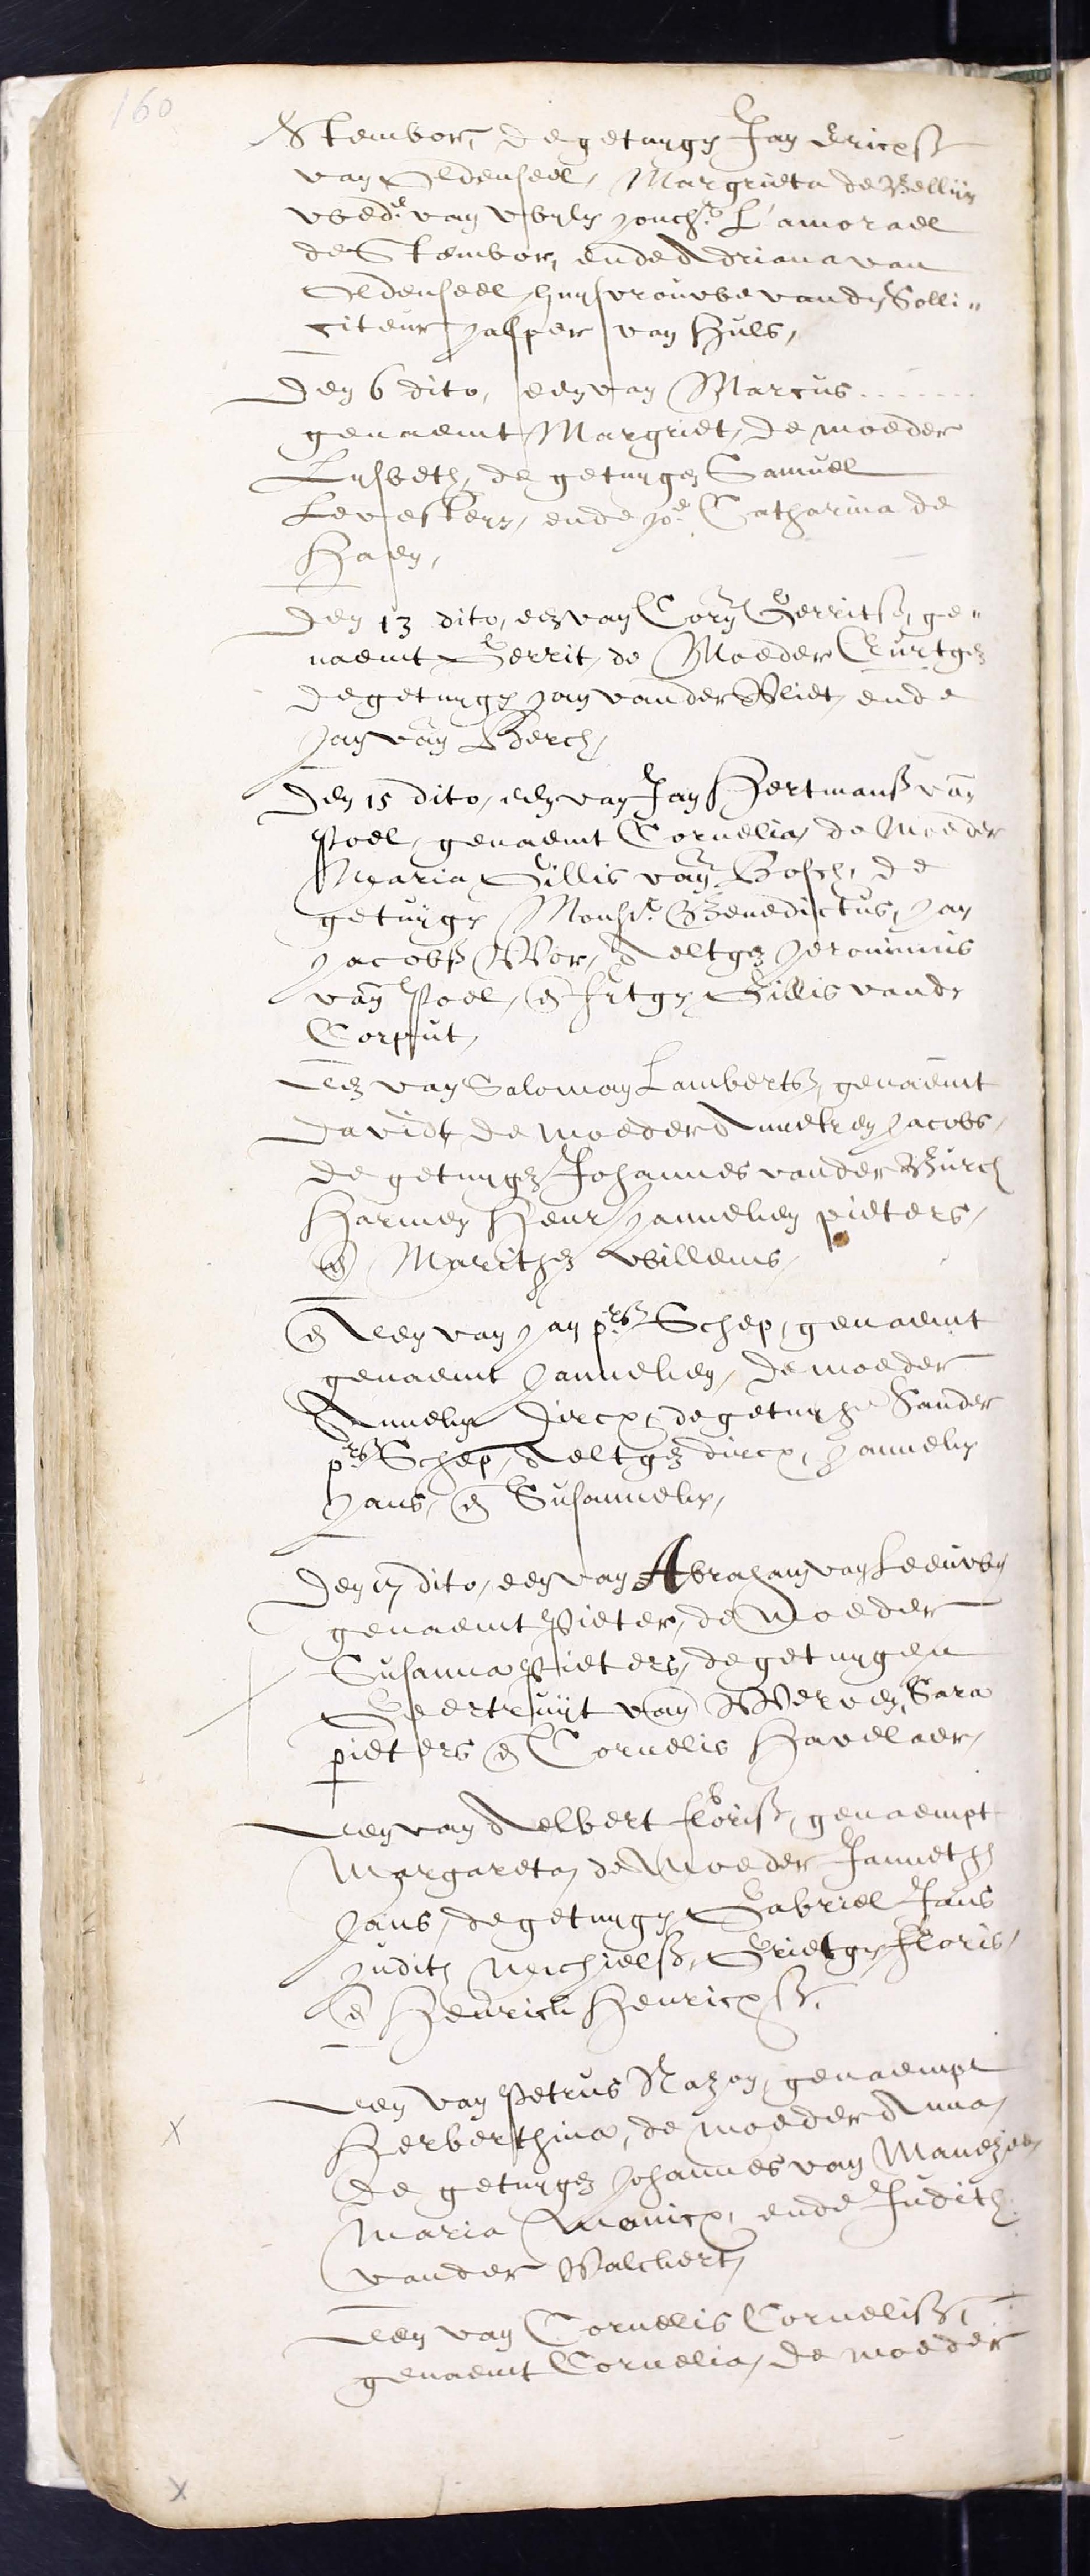 160
Stembor, de getuygen Jan Dricxß
van Oldenseel, Margrieta de Bellijn
wed.e van wylen jonch.r L'amorael
de Stembor, ende Adriana van
Oldenseel huysvrouwe vanden Solli-
citeur Jasper van Huls,
Den 6 dito, een van Marcus .......
genaemt Margriet, de moeder
Lysbeth, de getuygen Samuel
ende jo.e Catharina de
Haen,
Den 13 dito, een van Corn Gerritsz, ge-
naemt Gerrit, de Moeder
de getuygen Jan vander Vliet, ende
Jan van Berch,
Den 15 dito, een van Jan Hertmanß van
Poel, genaemt Cornelia, de Moeder
Maria Gillis van Bosch, de
getuygen Mons.r Benedictus, Jan
Jacobß Wor, Aeltgen Jeronimus
van Poel, en Fytgen Gillis vande
Corput,
Een van Salomon Lambertsz, genaemt
Davidt, de moeder Anneken Jacobs,
de getuygen Johannes vander Burch
Harmen Henr Janneken pieters,
en Marithen Willems,
en Een van Jan p.rß Schep, genaemt
genaemt Janneken, de moeder
Anneken Dircx, de getuyge Sander
p.rß Schep, Aeltgen dircx, Janneken
Jans, en Susanneken,
Den 17 dito, een van Abraham van Leeuwen
genaemt Pieter, de Moeder
Susanna Pieters, de getuygen
Geertruijt van Werven, Sara
pieters en Cornelis Havelaer,
Een van Aelbert floriß, genaempt
Margareta, de Moeder Janneth
Jans, de getuygen Gabriel Jans
Judith Michielß, Grietgen Floris,
en Henrick Henricxß.
Een van Petrus Nazon, genaempt
Herberthina, de moeder Anna,
de getuygen Johannes van
Maria Manicx, ende Judith
vander Walckert,
Een van Cornelis Cornelisz,
genaemt Cornelia, de moeder